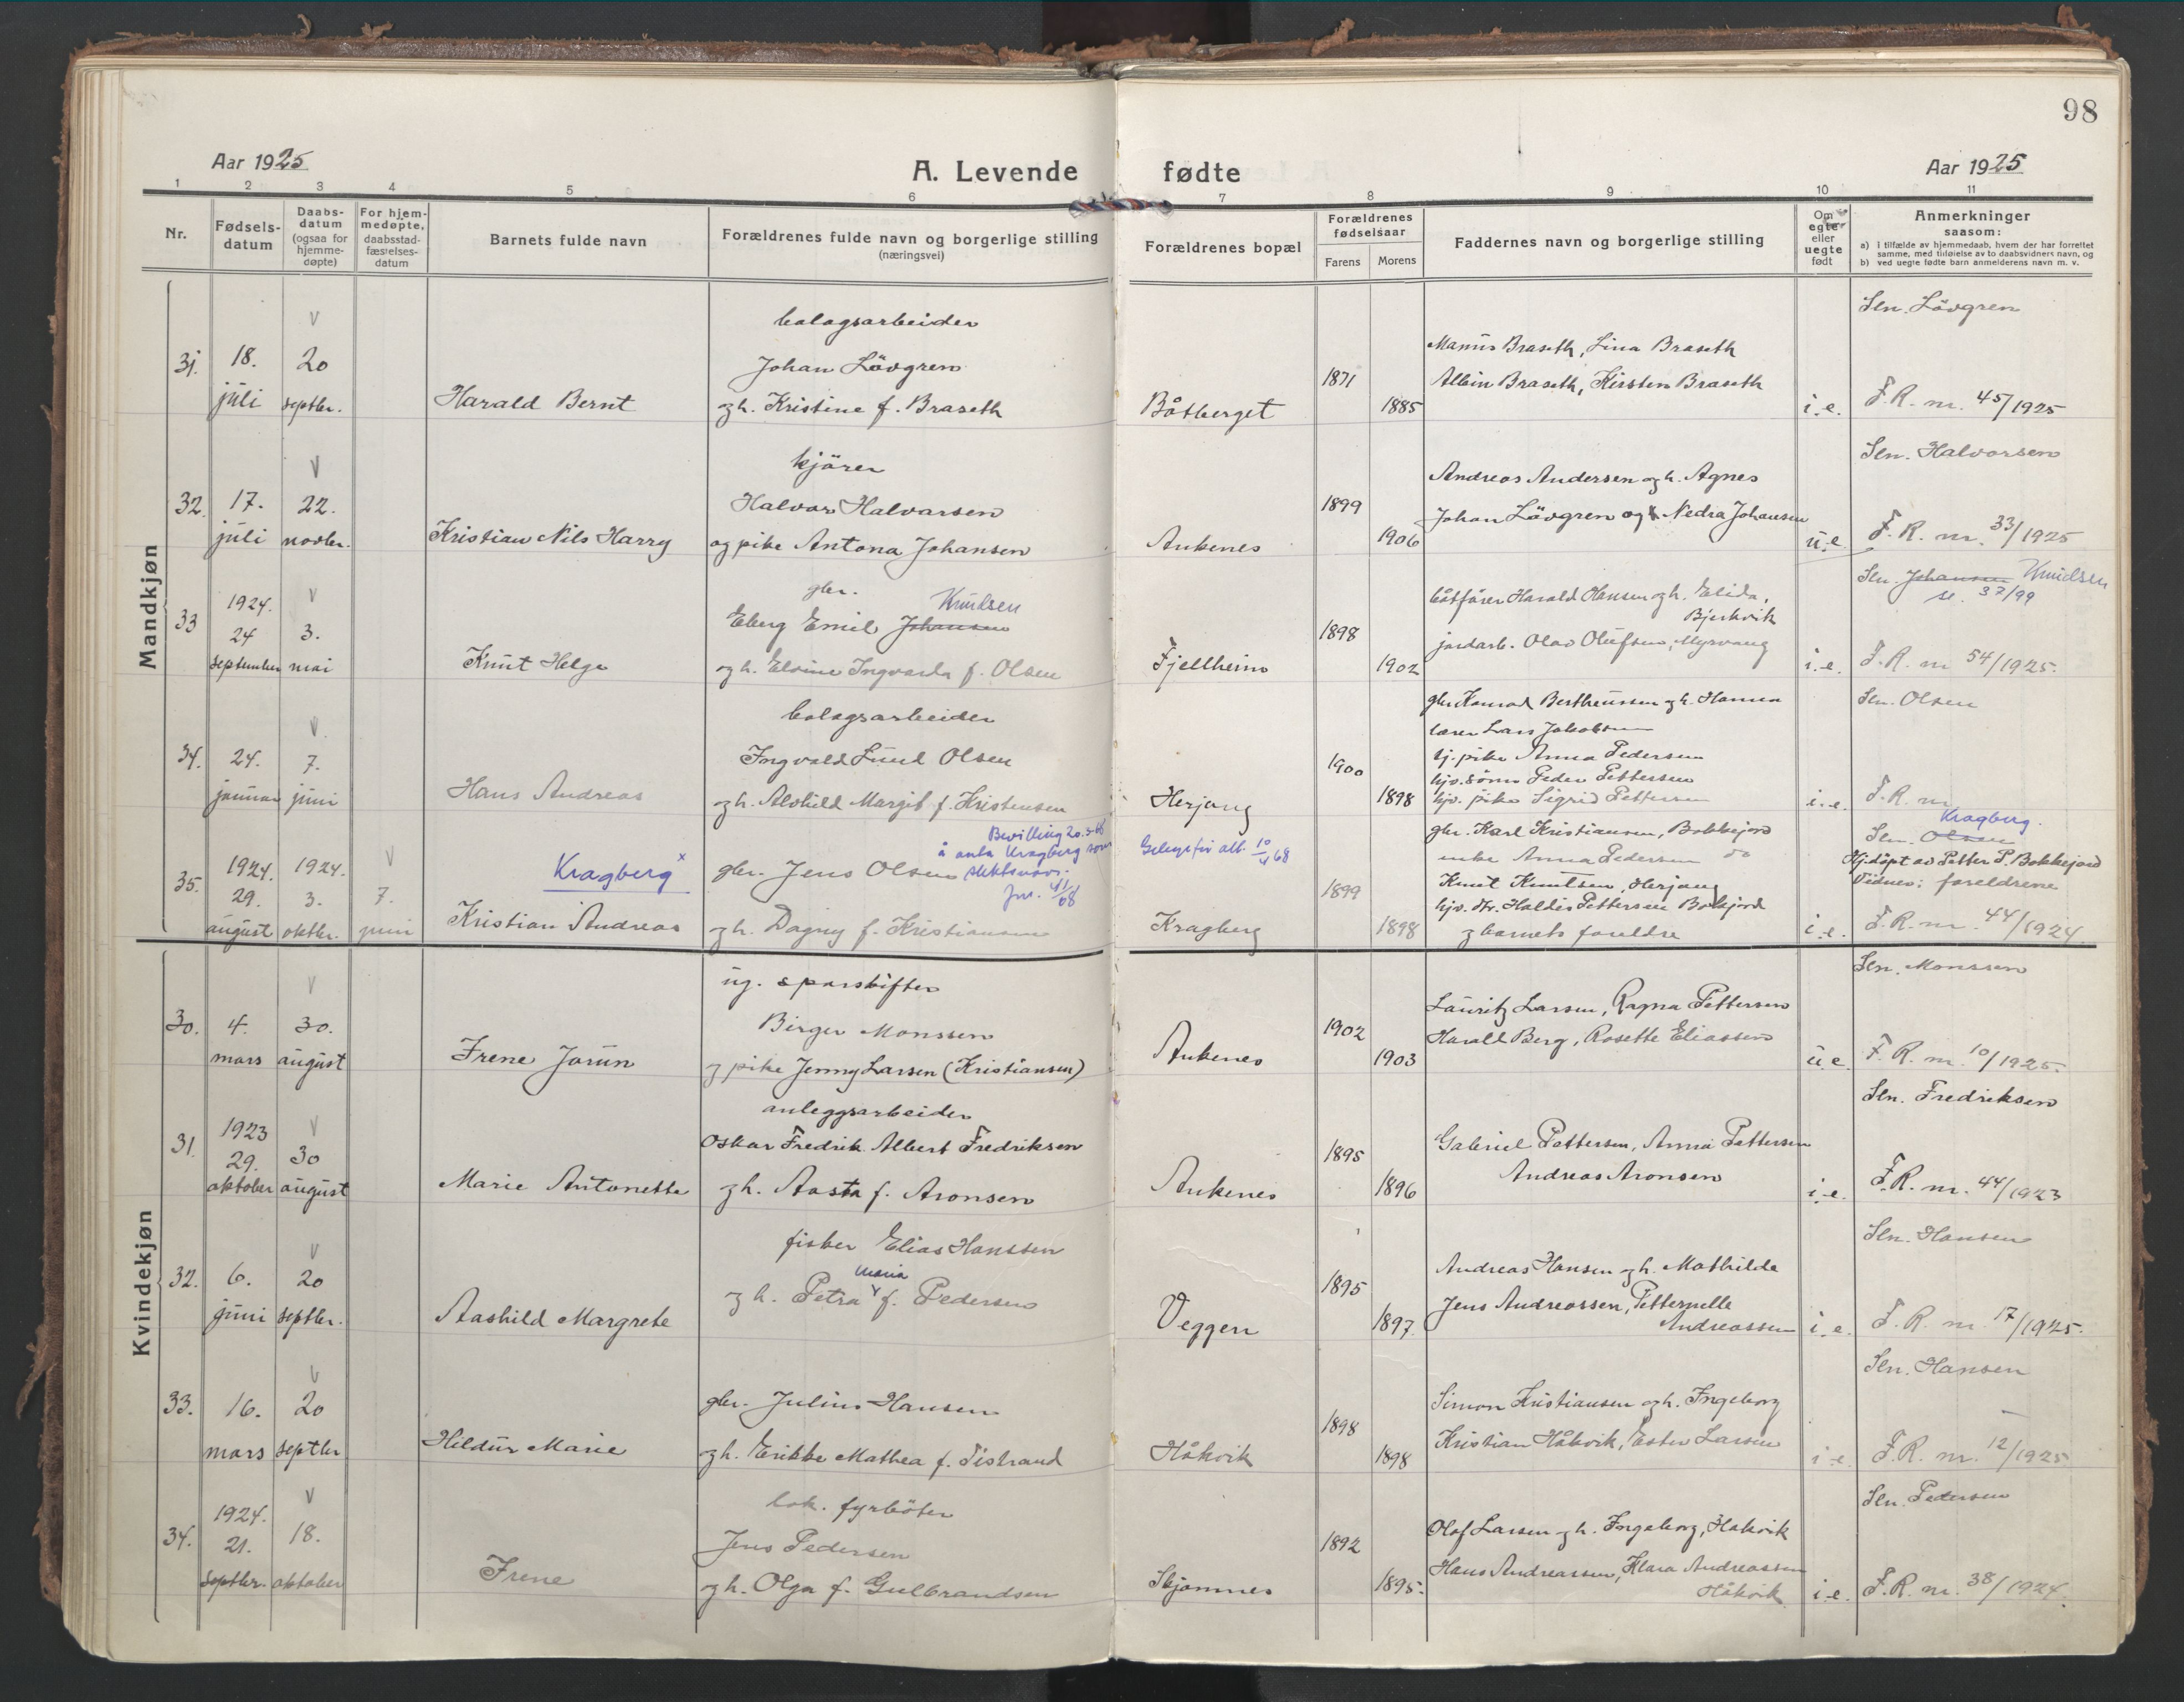 98
Aar 1925
A. Levende fødte
Aar 1925
1 2 3 4 5 6 7 8 9 10 11
Nr.
Fødsels-
datum
Daabs-
datum
(ogsaa for
hjemme-
døpte)
For hjem-
medøpte,
daabsstad-
fæstelses-
datum
Barnets fulde navn
Forældrenes fulde navn og borgerlige stilling
(næringsvei)
Forældrenes bopæl
Forældrenes
fødselsaar
Farens
Morens
Faddernes navn og borgerlige stilling
Om
egte
eller
uegte
født
Anmerkninger
saasom:
a) i tilfælde av hjemmedaab, hvem der har forrettet
samme, med tilføielse av to daabsvidners navn, og
b) ved uegte fødte barn anmelderens navn m. v.
Mandkjøn
31.
18.
juli
20
septbr.
Harald Bernt
bolagsarbeider
Johan Lövgren
og h. Kristine f. Braseth
Båtberget
1871
1885
Marius Braseth, Lina Braseth
Albin Braseth, Kirsten Braseth
i.e.
Sln. Lövgren
F.R. nr. 45/1925
32.
17.
juli
22.
novbr.
Kristian Nils Harry
kjörer
Halvor Halvorsen
og pike Antona Johansen
Ankenes
1899
1906
Andreas Andersen og h. Agnes
Johan Lövgren og Nedra Johansen
u.e.
Sln. Halvorsen
F.R. nr. 33/1925
33
1924.
24
september
3.
mai
Knut Helge
gbr. Knudsen
Eberg Emil Johansen
og h. Elvine Ingvarda f. Olsen
Fjellheim
1898
1902
båtfører Harald Hansen og h. Elida,
Bjerkvik
jordarb. Olav Olufsen, Myrvang
i.e.
Sln. Johansen Knudsen
se. 37/99
F.R. nr 54/1925.
34.
24.
januar
7.
juni
Hans Andreas
bolagsarbeider
Ingvald Olsen
og h. Alvhild Margit f. Kristensen
Herjang
1900
1898
gbr Konrad Bertheussen og h. Hanna
lærer Lars Jakobsen
tj. pike Anna Pedersen
hjv. sönn Peder Pettersen
hjv. pike Sigrid Pettersen
i.e.
Sln. Olsen
F.R. nr
35.
1924.
29.
august
1924.
3.
oktbr.
7.
juni
Kragberg x
Kristian Andreas
Bevilling 20.3.68
å anta Kragberg som
slektsnavn.
Jnr. 41/68
gbr. Jens Olsen
og h. Dagny f. Kristiansen
10/4 68
Kragberg
1899
1898
gbr. Karl Kristiansen, Bokkejord
enke Anna Pedersen do
Knut Knutsen, Herjang
hjv. dtr. Haldis Pettersen Bokjord
og barnets foreldre
i.e.
Kragberg.
Sln. Olsen
Hj.döpt av Petter P. Bokkejord
Vidner: foreldrene
F.R. nr. 44/1924.
Kvindekjøn
30.
4.
mars
30.
august
Irene Jorun
ug. sporskifter
Birger Monssen
og pike Jenny Larsen (Kristiansen)
Ankenes
1902
1903
Lauritz Larsen, Ragna Pettersen
Harald Berg, Rosette Eliassen
u.e.
Sln. Monssen
F.R. nr. 10/1925.
31.
1923
29.
oktober
30
august
Marie Antonette
anleggsarbeider
Oskar Fredrik Albert Fredriksen
og h. Aasta f. Aronsen
Ankenes
1895
1896
Gabriel Pettersen, Anna Pettersen
Andreas Aronsen
i.e.
Sln. Fredriksen
F.R. nr. 44/1923
32.
6.
juni
20
septbr.
Aashild Margrete
fisker Elias Hanssen
Maria
og h. Petra f. Pedersen
Veggen
1895
1897
Andreas Hansen og h. Mathilde
Jens Andreassen, Petternelle
Andreassen
i.e.
Sln. Hansen
F.R. nr. 17/1925.
33.
16.
mars
20
septbr
Hildur Marie
gbr. Julius Hansen
og h. Erikke Mathea f. Tistrand
Håkvik
1898
1898
Simon Kristiansen og h. Ingeborg
Kristian Håkvik, Ester Larsen
i.e.
Sln. Hansen
F.R. nr. 12/1925
34.
1924.
21.
septbr.
18.
oktober
Irene
lok. fyrböter
Jens Pedersen
og h. Olga f. Gulbrandsen
Skjomnes
1892
1895.
Olaf Larsen og h. Ingeborg, Håkvik
Hans Andreassen, Klara Andreassen
Håkvik
i.e.
Sln. Pedersen
F.R. nr. 38/1924.